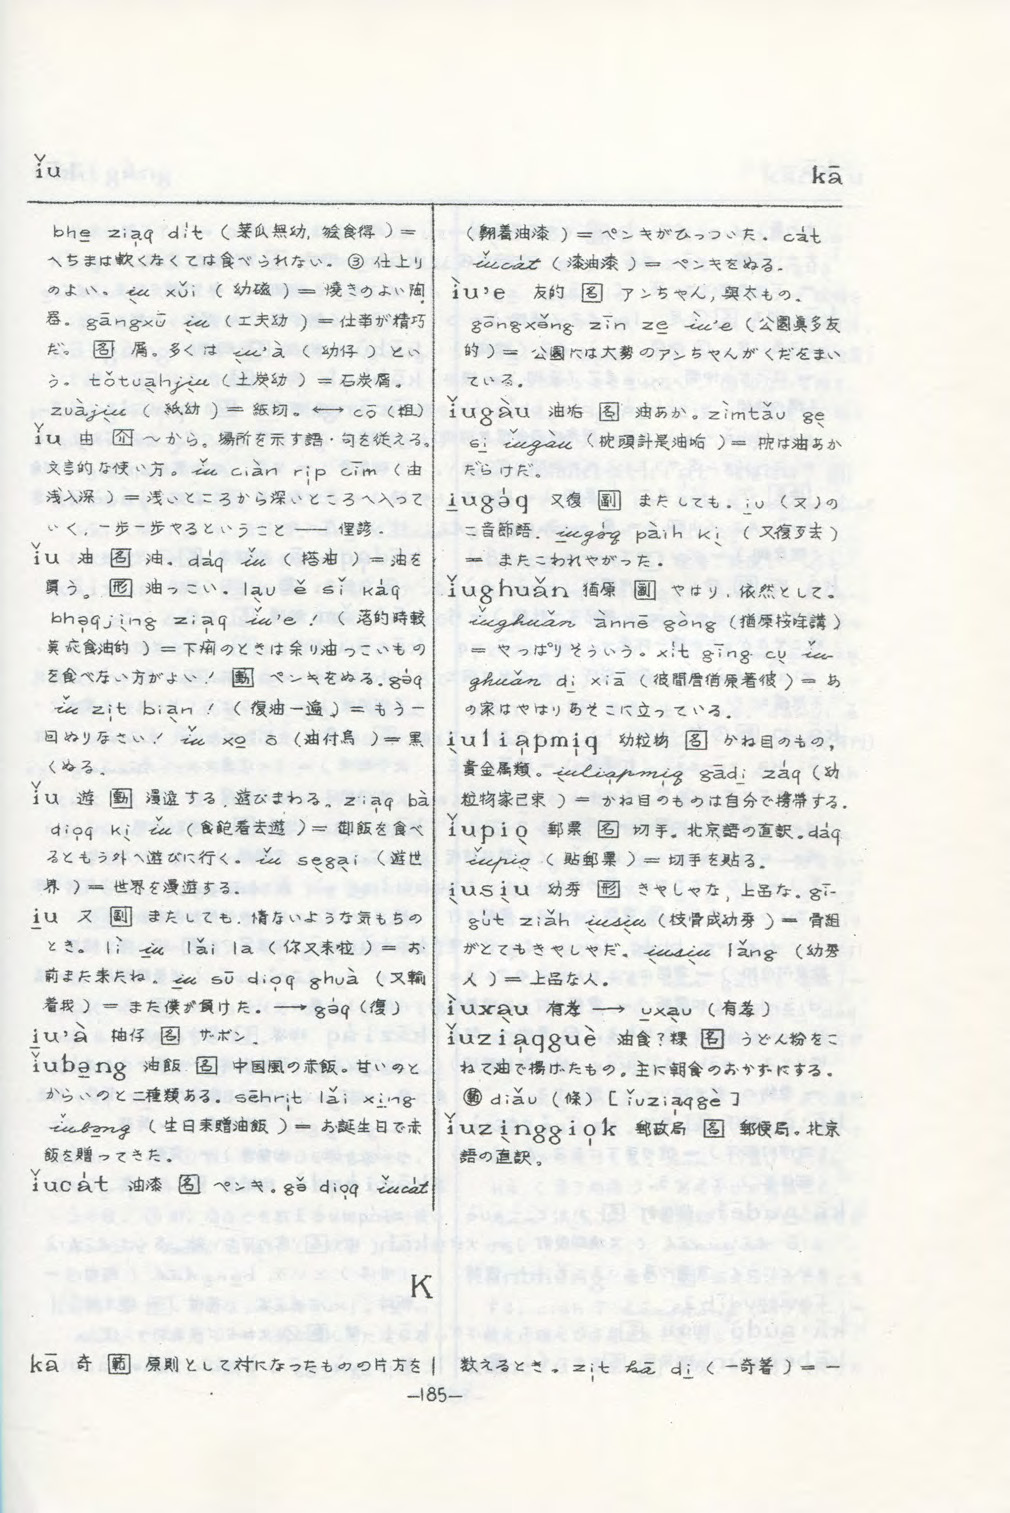 ǐu
kā
bhe̱ zia̍q di̍t (菜瓜無幼, 𣍐食得) =
へちまは軟くなくては食べられない。③仕上り
のよい。iu xǔi (幼磁) = 焼きのよい陶
器。gāngxū iu (工夫幼) = 仕事が精巧
だ。名 屑。多くは iu'à (幼仔) とい
う。tǒtuahjiu (土炭幼) = 石炭屑。
zuàjiu (紙幼) = 紙切。←→ cō (粗)
ǐu 由 介 〜から。場所を示す語・句を従える。
文言的な使い方。ǐu ciàn rip cīm (由
浅入深) = 浅いところから深いところへ入って
いく、一歩一歩やるということ——俚諺.
ǐu 油 名 油. daq ǐu (搭油) = 油を
買う。形 油っこい. lau ě sǐ káq
bhəqjing ziaq ǐu'e! (落的時較
莫応食油的) = 下痢のときは余り油っこいもの
を食べない方がよい! 動 ペンキをぬる. gəq
ǐu zit biàn! (復油一遍) = もう一
回ぬりなさい! ǐu xo ō (油付烏) = 黒
くぬる.
ǐu 遊 動 漫遊する. 遊びまわる. ziaq bà
dioq ki ǐu (食飽着去遊) = 御飯を食べ
るともう外へ遊びに行く。ǐu segai (遊世
界) = 世界を漫遊する.
i̱u 又 副 またしても. 情ないような気もちの
とき。lì i̱u lǎi la (你又来啦) = お
前また来たね. i̱u sū dioq ghuà (又輸
着我) = また僕が負けた. ——→ gəq (復)
i̱u'à 柚仔 名 ザボン.
ǐubəng 油飯 名 中国風の赤飯。甘いのと
からいのと二種類ある. sēhrit lǎi xing
ǐubəng (生日来贈油飯) = お誕生日で赤
飯を贈ってきた.
ǐucát 油漆 名 ペンキ. gǒ dioq ǐucát
(翱着油漆) = ペンキがひっついた. cát
ǐucát (漆油漆) = ペンキをぬる.
ìu'e 友的 名 アンちゃん, 與太もの.
gōngxə̌ng zīn ze ìu'e (公園真多友
的) = 公園には大勢のアンちゃんがくだをまい
ている.
ǐugàu 油垢 名 油あか. zìmtǎu ge
ei ǐugàu (枕頭計是油垢) = 枕は油あか
だらけだ。
i̱ugəq 又復 副 またしても. i̱u (又) の
二音節語. i̱ugəq pàih ki (又復歹去)
= またこわれやがった.
ǐughuǎn 猶原 副 やはり. 依然として.
ǐughuǎn ānnē gòng (猶原按哖講)
= やっぱりそういう. xit gīng cu ǐu-
ghuǎn di xiā (彼間厝猶原著彼) = あ
の家はやはりあそこに立っている.
iuliapmiq 幼粒物 名 かね目のもの,
貴金属類。iuliapmiq gādi zāq (幼
粒物家已束) = かね目のものは自分で携帯する.
ǐupio 郵票 名 切手. 北京語の直訳. daq
ǐupio (貼郵票) = 切手を貼る.
iusiu 幼秀 形 きゃしゃな, 上品な. gī-
gút ziǎh iusiu (枝骨成幼秀) = 骨組
がとてもきゃしゃだ. iusiu lǎng (幼秀
人) = 上品な人.
ìuxau 有孝 —→ uxau (有孝)
ǐuziaqguè 油食?粿 名 うどん粉をこ
ねて油で揚げたもの. 主に朝食のおかずにする.
範 diǎu (條) [ǐuziaqgè]
ǐuzinggiok 郵政局 名 郵便局. 北京
語の直訳。
K
kā 奇 範 原則として対になったものの片方を
数えるとき. zit kā di (一奇箸) = 一
—185—